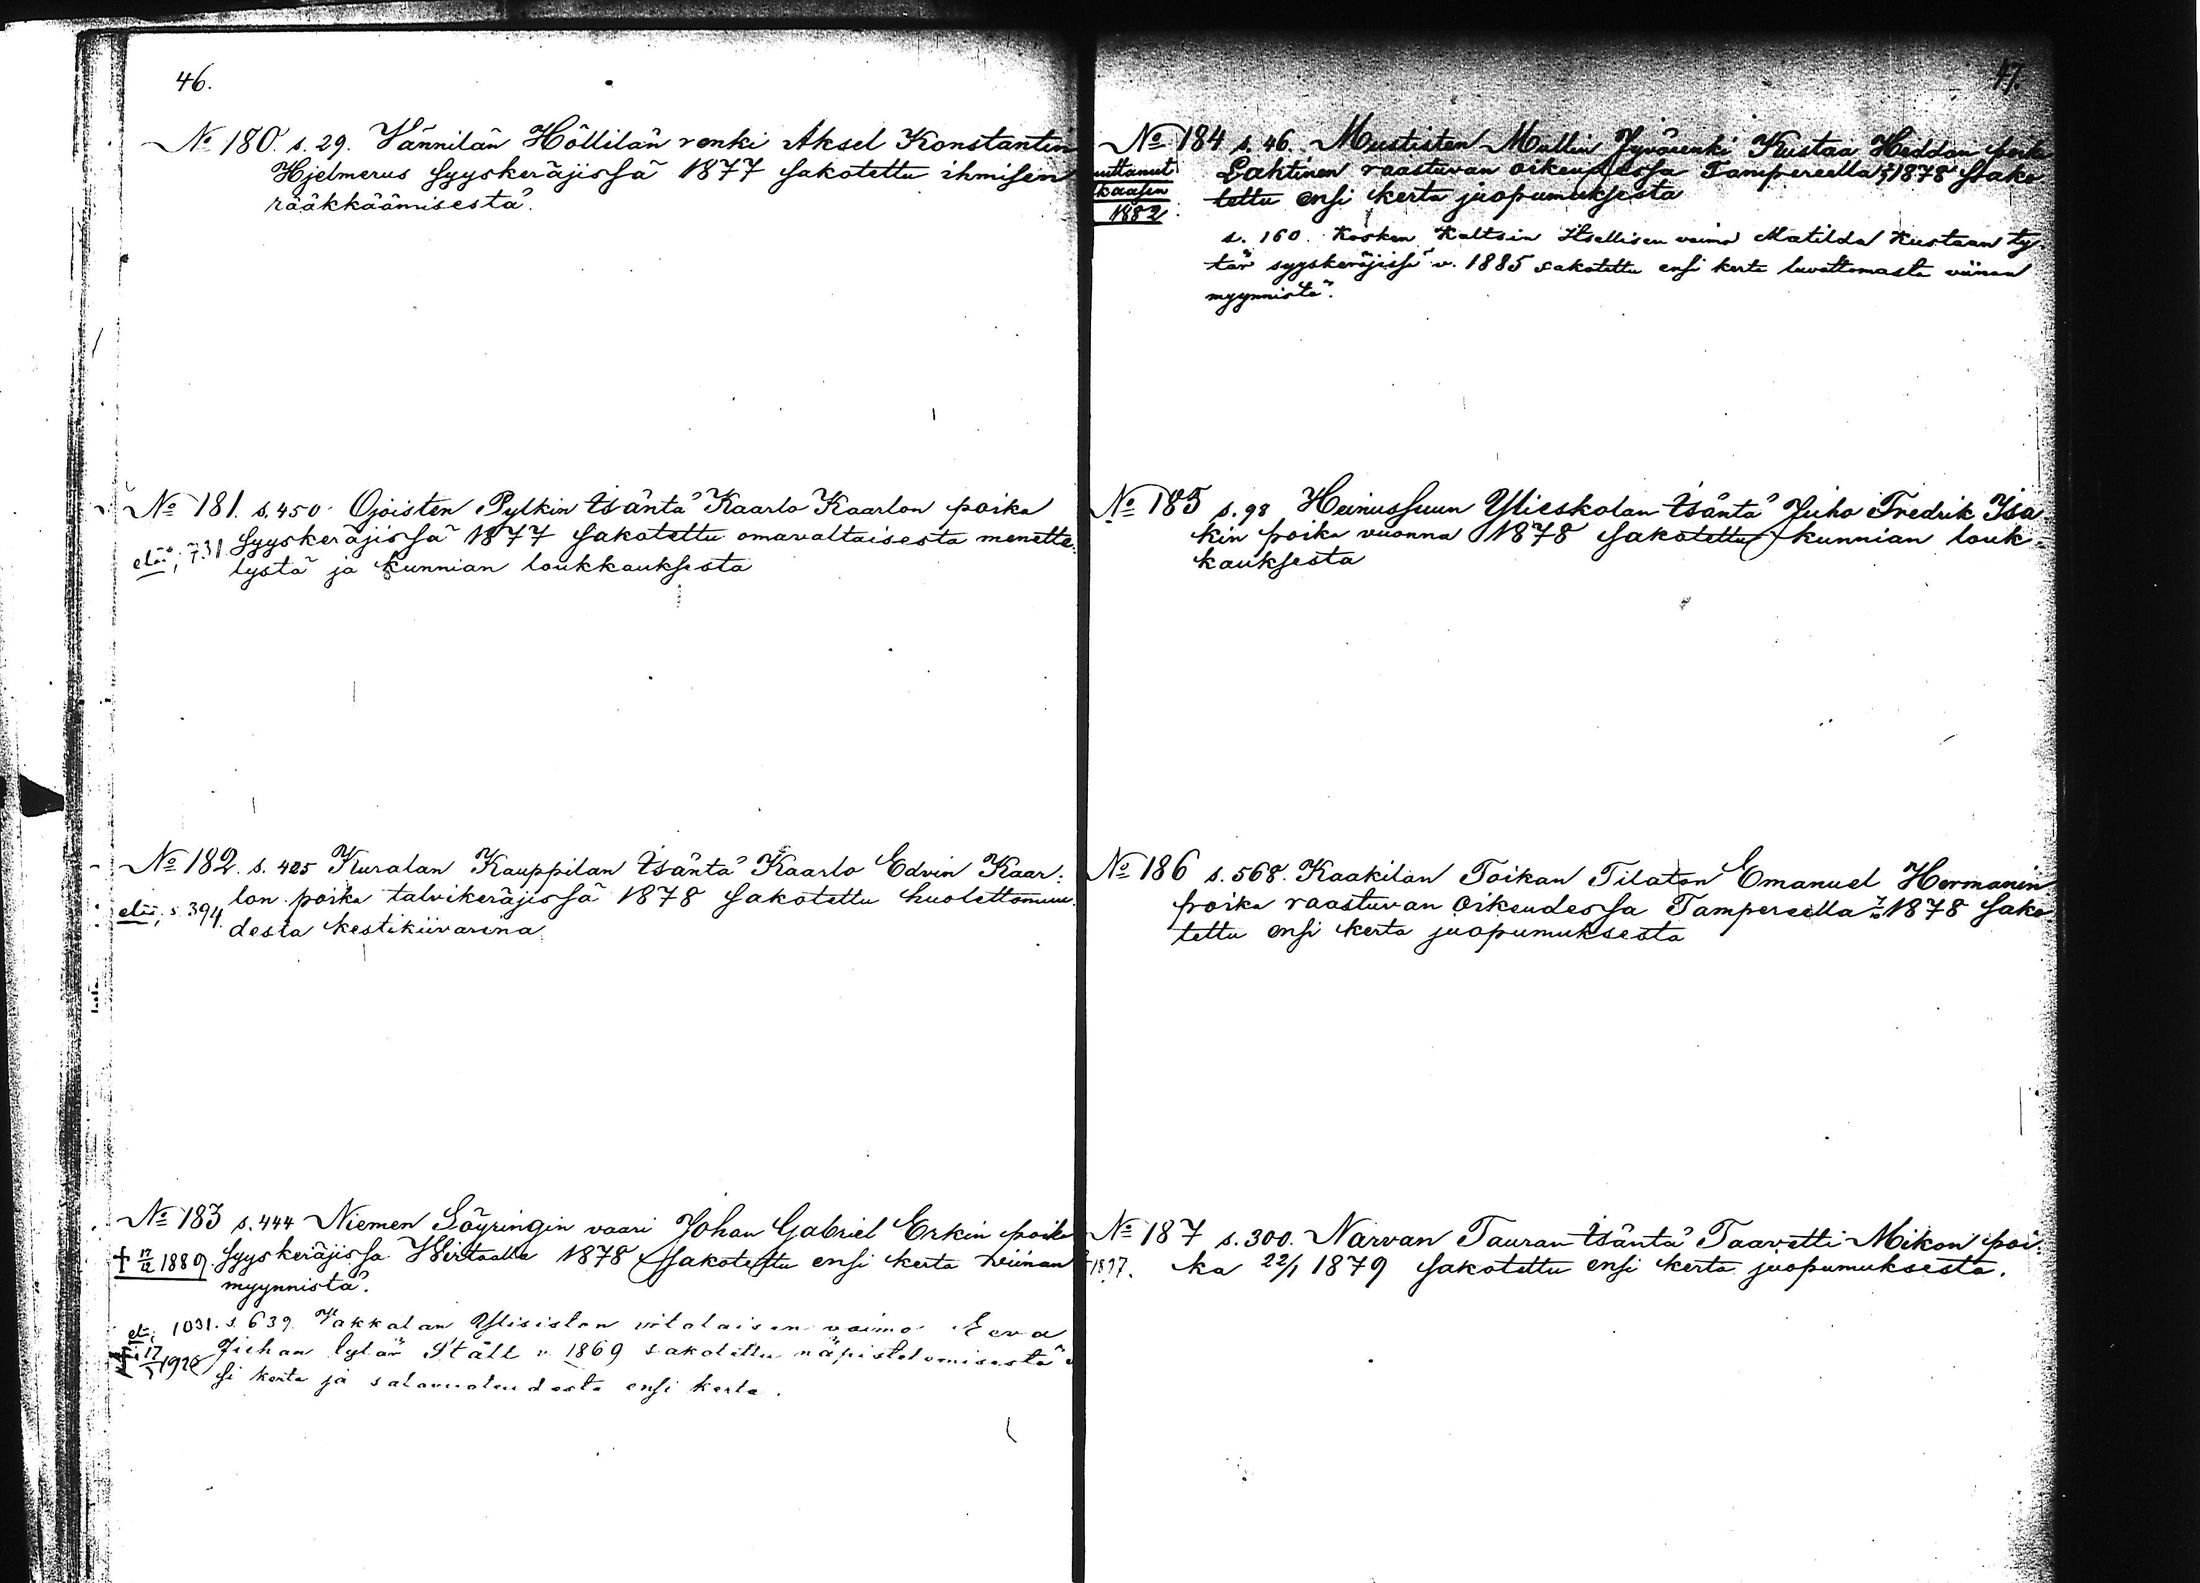 46.
No 180. s. 29. Vännilän Höllilän renki Aksel Konstantin
Hjelmerus syyskeräjissä 1877 sakotettu ihmisen
rääkkäämisestä.
No 181. s. 450. Ojoisten Pylkin isäntä Kaarlo Kaarlon poika
syyskeräjissä 1877 sakotettu omavaltaisesta menette:
elää; 731
lystä ja kunnian loukkauksesta
No 182. s. 425 Kuralan Kauppilan isäntä Kaarlo Edvin Kaar:
lon poika talvikeräjissä 1878 sakotettu huolettomuu
elää; s. 394.
desta kestikiivarina.
No 183 s. 444 Niemen Söyringin vaari Johan Gabriel Erkin poika
† 1889 syyskeräjissä Wirtaalla 1878 sakotettu ensi kerta viinan
myynnistä.
el; 1031. s. 639. Vakkalan Ylisistan vaimo Eeva
Juhan tytär Ståll v. 1869 sakotettu näpistelemisestä
† 17 1928
si kerta ja salavuoteudesta ensi kerta.
47.
No 184 s. 46. Mustisten Mullin Jyvärenki Kustaa Heddan poika
Lahtinen raastuvan oikeudessa Tampereella 1878 sako
muttanut
tettu ensi kerta juopumuksesta
1882.
s. 160. Kosken Kaltsin itsellisen vaimo Matilda Kustaan ty:
tär syyskeräjissä v. 1885 sakotettu ensi kerta luvattomasta viinan
myynnistä.
No 185 s. 98 Heinussuun Ylieskolan isäntä Juho Fredrik Isa
kin poika vuonna 1878 sakotettu kunnian louk:
kauksesta
No 186 s. 568. Kaakilan Toikan Tilaton Emanuel Hermanin
poika raastuvan oikeudessa Tampereella 1878 sako
tettu ensi kerta juopumuksesta
No 187 s. 300. Narvan Tauran isäntä Taavetti Mikon poi:
ka 22/1 1879 sakotettu ensi kerta juopumuksesta.